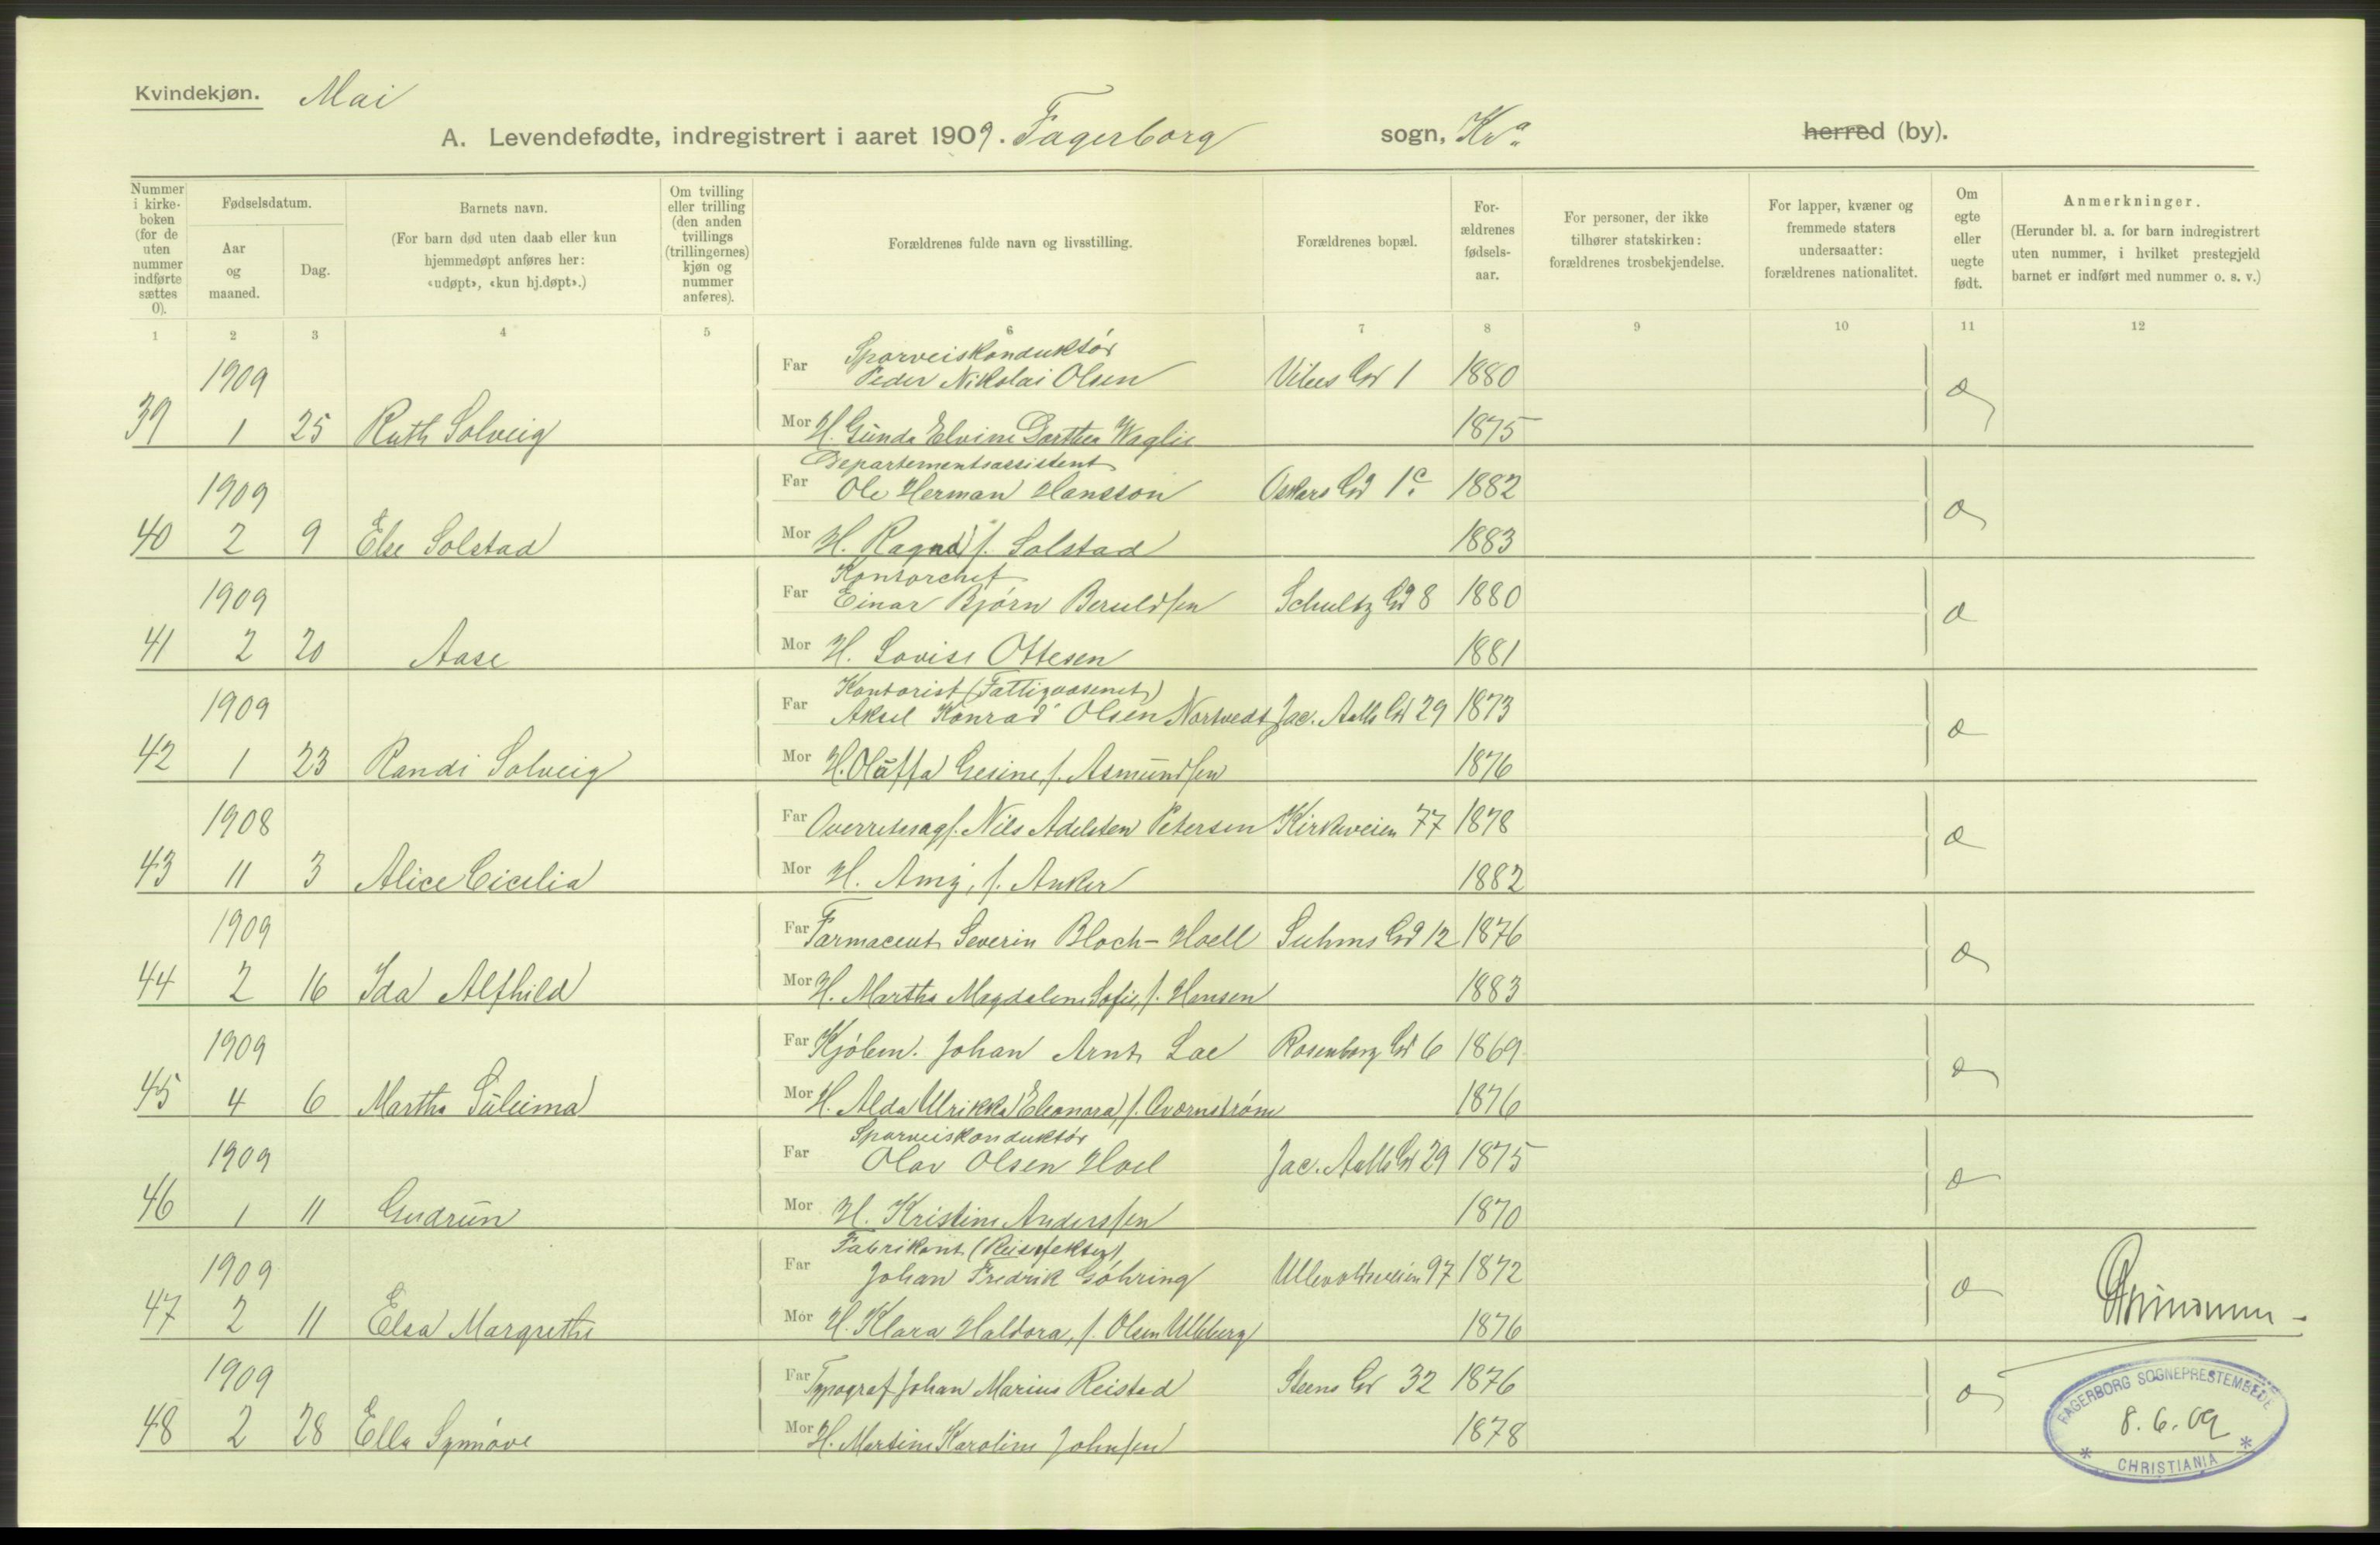 Kvindekjøn. Mai
A. Levendefødte, indregistrert i aaret 1909. Fagerborg sogn, Kra herred (by).
Nummer i kirke-boken (for de uten nummer indførte sættes 0).
Fødselsdatum.
Aar og maaned.
Dag.
Barnets navn.
(For barn død uten daab eller kun hjemmedøpt anføres her: «udøpt», «kun hj.døpt».)
Om tvilling eller trilling (den anden tvillings (trillingernes) kjøn og nummer anføres).
Forældrenes fulde navn og livsstilling.
Forældrenes bopæl.
For-ældrenes fødsels-aar.
For personer, der ikke tilhører statskirken: forældrenes trosbekjendelse.
For lapper, kvæner og fremmede staters undersaatter: forældrenes nationalitet.
Om egte eller uegte født.
Anmerkninger.
(Herunder bl. a. for barn indregistrert uten nummer, i hvilket prestegjeld barnet er indført med nummer o. s. v.)
1 2 3 4 5 6 7 8 9 10 11 12
Sporveiskonduktør
1909 Far Peder Nikolai Olsen Vibes Gd 1 1880 e
39 1 25 Ruth Solveig Mor H. Gunda Elvine Dorthea Waglie 1875
Departementsassistent
1909 Far Ole Herman Hansson Oskars Gd 1c. 1882 e
40 2 9 Else Solstad Mor H. f. Solstad 1883
Kontorchef
1909 Far Einar Bjørn Beruldsen Schultz Gd 8 1880 e
41 2 20 Aase Mor H. Lovise Ottesen 1881
Kontorist (Fattigvæsenet)
1909 Far Aksel Konrad Olsen Nortvedt Jac. Aalls Gd 29 1873 e
42 1 23 Randi Solveig Mor H. Oluffa Gesine, f. Asmundsen 1876
1908 Far Overretssagf. Nils Adelsten Petersen Kirkeveien 77 1878 e
43 11 3 Alice Cicilia Mor H. Amy, f. Anker 1882
1909 Far Farmaceut Severin Bloch-Hoell Suhms Gd 12 1876 e
44 2 16 Ida Alfhild Mor H. Martha Magdalene Sofie, f. Hansen 1883
1909 Far Kjøbm. Johan Arnt Lae Rosenborg Gd 6 1869 e
45 4 6 Martha Suleima Mor H. Alda Ulrikka Eleonora, f. Qvarnstrøm 1876
Sporveiskonduktør
1909 Far Olav Olsen Hoel Jac. Aalls Gd 29 1875 e
46 1 11 Gudrun Mor H. Kristine Anderssen 1870
Fabrikant (Reiseffekter)
1909 Far Johan Fredrik Göhring Ullevoldsveien 97 1872 e
47 2 11 Elsa Margrethe Mor H. Klara Haldora, f. Olsen 1876
1909 Far Typograf Johan Marius Reistad Steens Gd 32 1876 e
48 2 28 Ella Synnøve Mor H. Martine Karoline Johnsen 1878
FAGERBORG SOGNEPRESTEMBEDE
8.6.09
* CHRISTIANIA *